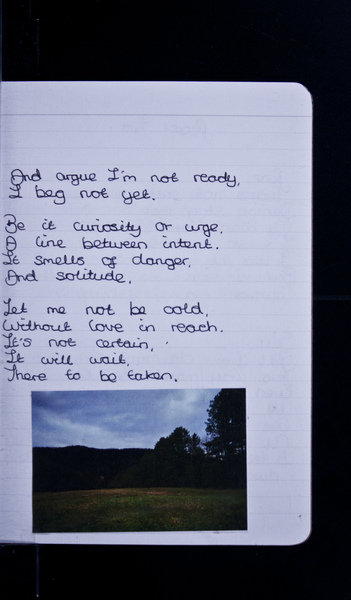 And argue I'm not ready,
I beg not yet.
Be it curiosity or urge,
A line between intent.
It smells of danger,
And solitude,
Let me not be cold,
Without love in reach.
It's not certain,
It will wait,
There to be taken.